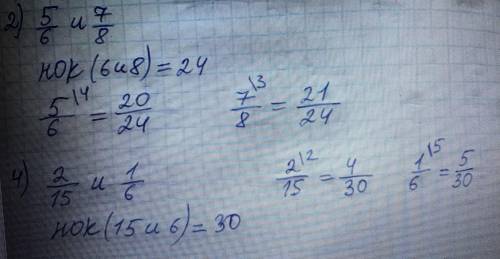 2) 5/6 и 7/8
нок(6и8)=24
5/6 \4 = 20/24 7/8 \3 = 21/24
4) 2/15 и 1/6 2/15 \2 = 4/30 1/6 \5 = 5/30
нок(15и6)=30